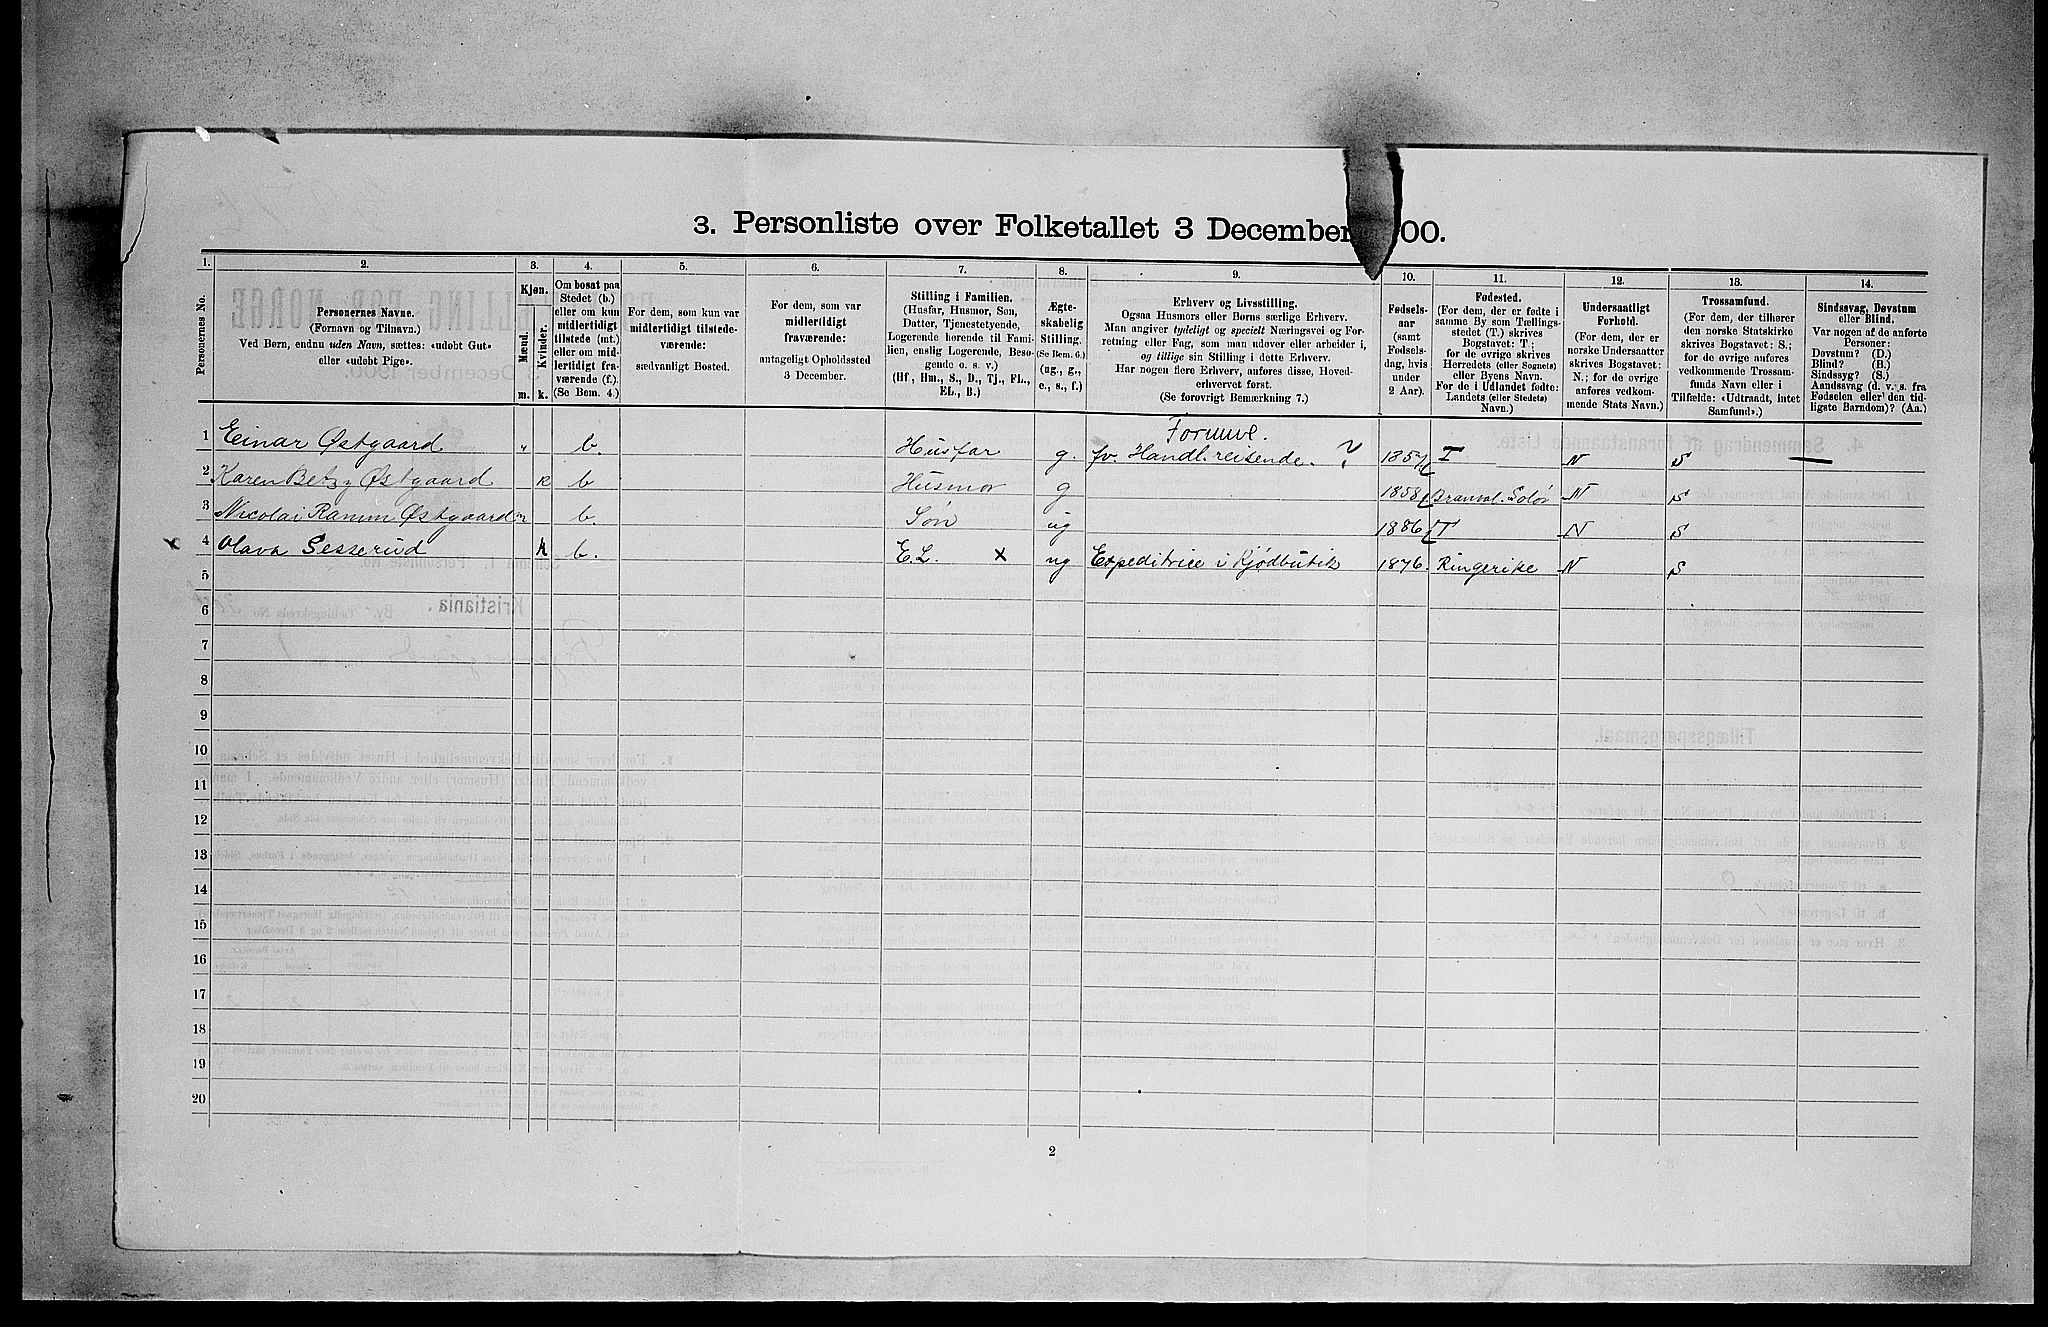 3. Personliste over Folketallet 3 December 00.
1. 2. 3. 4. 5. 6. 7. 8. 9. 10. 11. 12. 13. 14.
Personernes No.
Personernes Navne.
(Fornavn og Tilnavn.)
Ved Børn, endnu uden Navn, sættes: «udøbt Gut»
eller «udøbt Pige».
Kjøn.
Mænd.
Kvinder.
m. k.
Om bosat paa
Stedet (b.)
eller om kun
midlertidigt
tilstede (mt.)
eller om mid-
lertidigt fra-
værende (f.)
(Se Bem. 4.)
For dem, som kun var
midlertidigt tilstede-
værende:
sædvanligt Bosted.
For dem, som var
midlertidigt
fraværende:
antageligt Opholdssted
3 December.
Stilling i Familien.
(Husfar, Husmor, Søn,
Datter, Tjenestetyende,
Logerende hørende til Fami-
lien, enslig Logerende, Besø-
gende o. s. v.)
(Hf., Hm., S., D., Tj., FL.,
EL., B.)
Ægte-
skabelig
Stilling.
(Se Bem. 6.)
(ug., g.,
e., s., f.)
Erhverv og Livsstilling.
Ogsaa Husmors eller Børns særlige Erhverv.
Man angiver tydeligt og specielt Næringsvei og For-
retning eller Fag, som man udøver eller arbeider i,
og tillige sin Stilling i dette Erhverv.
Har nogen flere Erhverv, anføres disse, Hoved-
erhvervet først.
(Se forøvrigt Bemærkning 7.)
Fødsels-
aar
(samt
Fødsels-
dag, hvis
under
2 Aar).
Fødested.
(For dem, der er fødte i
samme By som Tællings-
stedet (T.) skrives
Bogstavet: T.;
for de øvrige skrives
Herredets (eller Sognets)
eller Byens Navn.
For de i Udlandet fødte:
Landets (eller Stedets)
Navn.)
Undersaatligt
Forhold.
(For dem, der er
norske Undersaatter
skrives Bogstavet:
N.; for de øvrige
anføres vedkom-
mende Stats Navn.)
Trossamfund.
(For dem, der tilhører
den norske Statskirke
skrives Bogstavet: S.;
for de øvrige anføres
vedkommende Trossam-
funds Navn eller i
Tilfælde: «Udtraadt, intet
Samfund».)
Sindssvag, Døvstum
eller Blind.
Var nogen af de anførte
Personer:
Døvstum? (D.)
Blind? (B.)
Sindssyg? (S.)
Aandssvag (d. v. s. fra
Fødselen eller den tid-
ligste Barndom)? (Aa.)
Formue.
1 Einar Østgaard b. Husfar g. fv. Handl. reisende. ? 1857 T N S —
2 Karen Betzy Østgaard k b Husmor g 1858 Branval. Solør N S
3 Nicolai Ramm Østgaard m b. Søn ug 1886 T N S
4 Olava Sesserud k b. E.L. x ug Expeditrice i Kjødbutik 1876. Ringerike N S
5
6
7
8
9
10
11
12
13
14
15
16
17
18
19
20
2